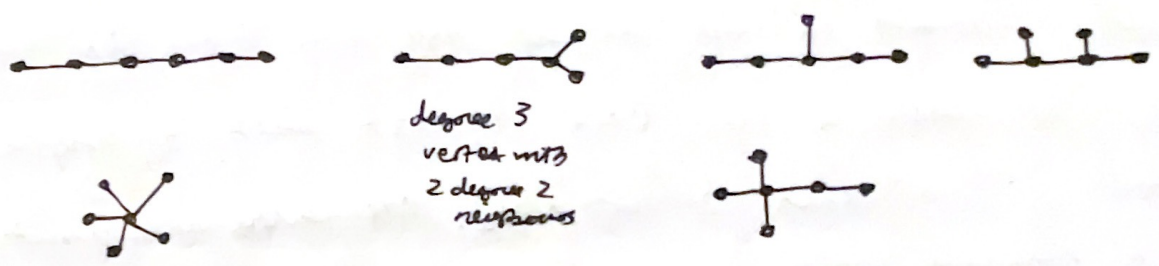 degree 3
vertex
2 degree 2
neighbours